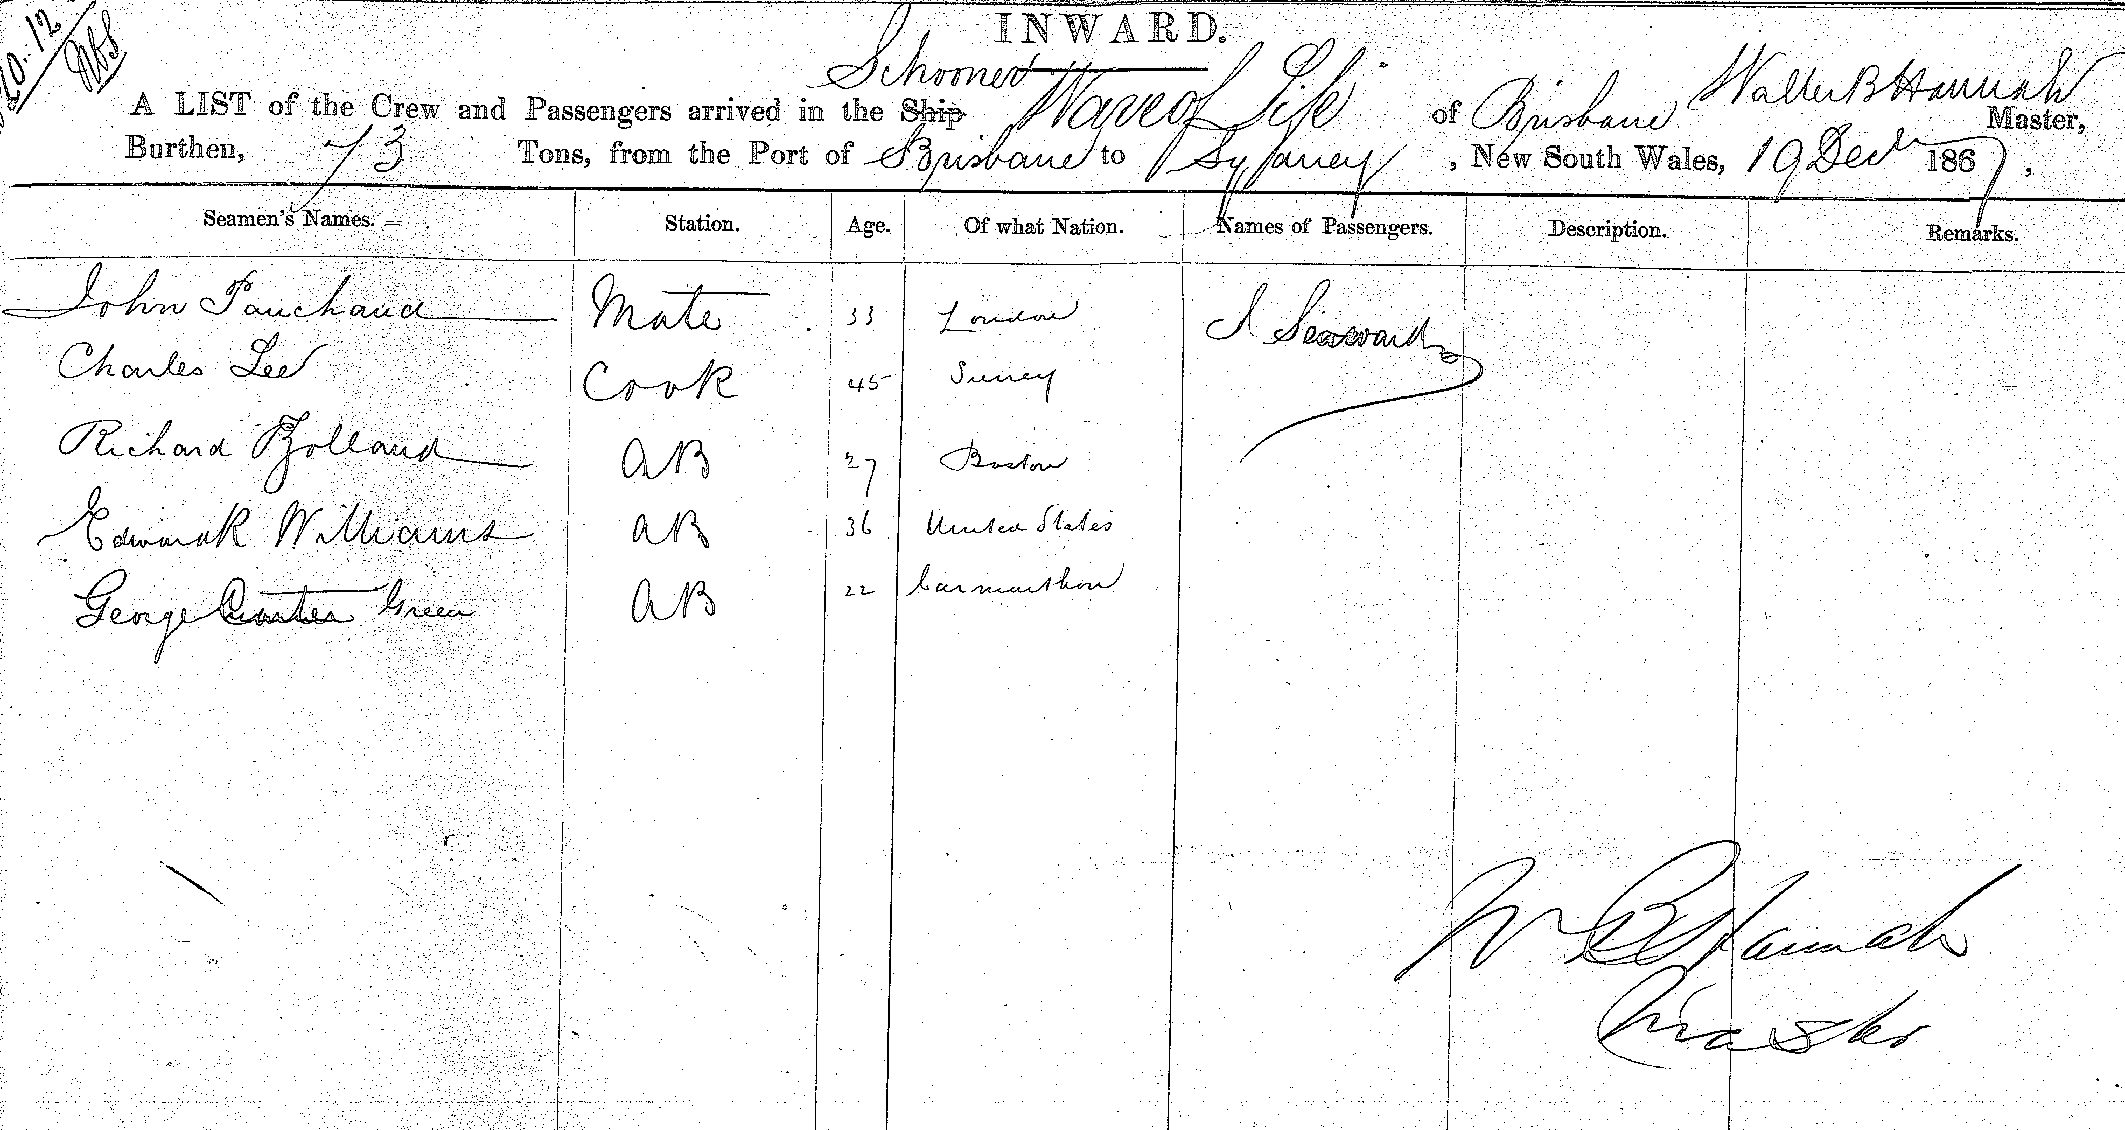 20.12
INWARD.
Schooner
A LIST of the Crew and Passengers arrived in the Ship Wave of Life of Brisbane Walter B Hannah Master,
Burthen, 73 Tons, from the Port of Brisbane to Sydney, New South Wales, 19 Decr 1867,
Seamen's Names. Station. Age. Of what Nation. Names of Passengers. Description. Remarks.
John Pauchaud Mate 33 London J Seaward
Charles Lee Cook 45 Surrey
Richard Bolland AB 27 Boston
Edward Williams AB 36 United States
George Carter Green AB 22 Carmarthen
W B Hannah
Master